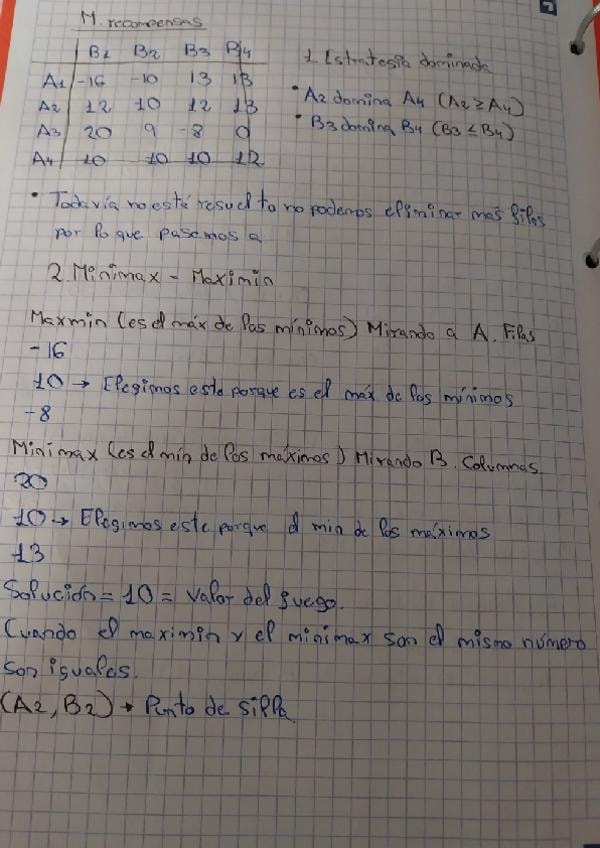 M. recompensas
B1 B2 B3 B4
A1 -16 -10 13 13
A2 12 10 12 13
A3 20 9 -8 0
A4 10 10 10 12
1. Estrategia dominada
• A2 domina A4 (A2 ≥ A4)
• B3 domina B4 (B3 ≤ B4)
• Todavía no esté resuelto no podemos eliminar mas filas
por lo que pasamos a
2. Minimax - Maximin
Maxmin (es el máx de los mínimos) Mirando a A. Filas
-16
10 → Elegimos este porque es el máx de los mínimos
-8
Minimax (es el mín de los máximos) Mirando B. Columnas.
20
10 → Elegimos este porque el min de los máximos
13
Solución = 10 = Valor del juego.
Cuando el maximin y el minimax son el mismo número
son iguales.
(A2, B2) → Punto de silla